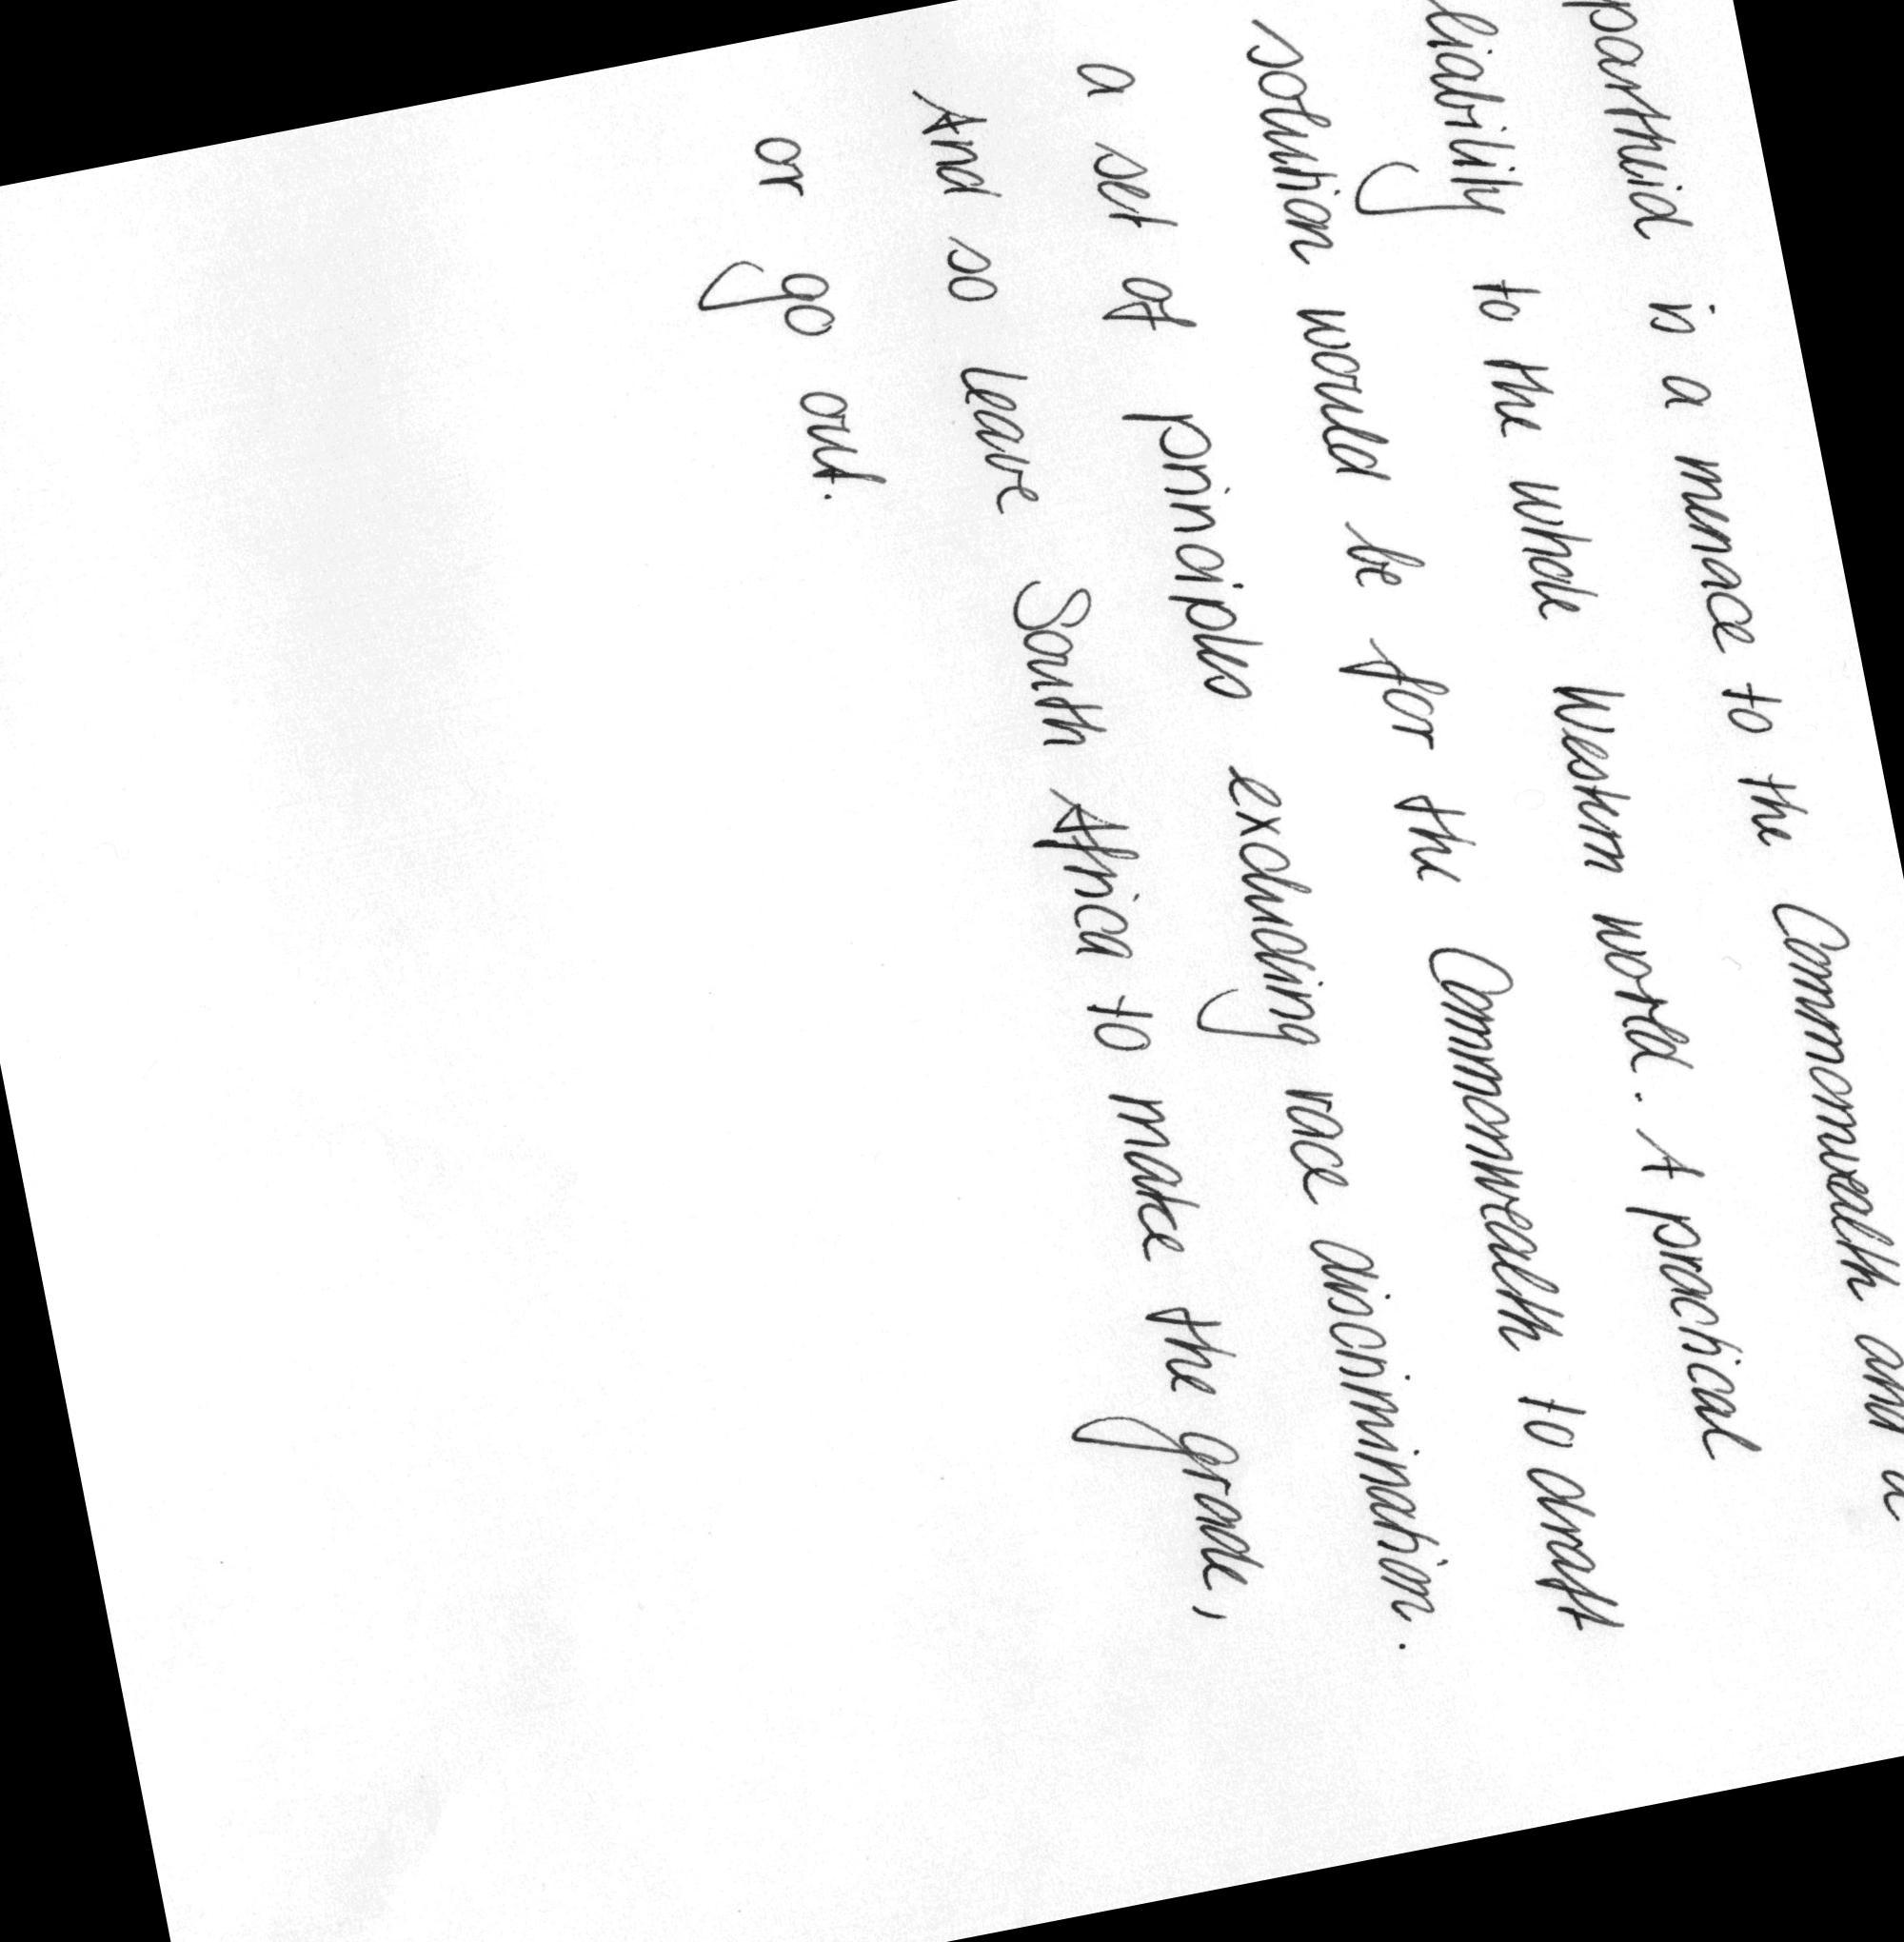 partheid is a menace to the Commonwealth and a
liability to the whole Western world. A practical
solution would be for the Commonwealth to draft
a set of principles excluding race discrimination.
And so leave South Africa to make the grade,
or go out.